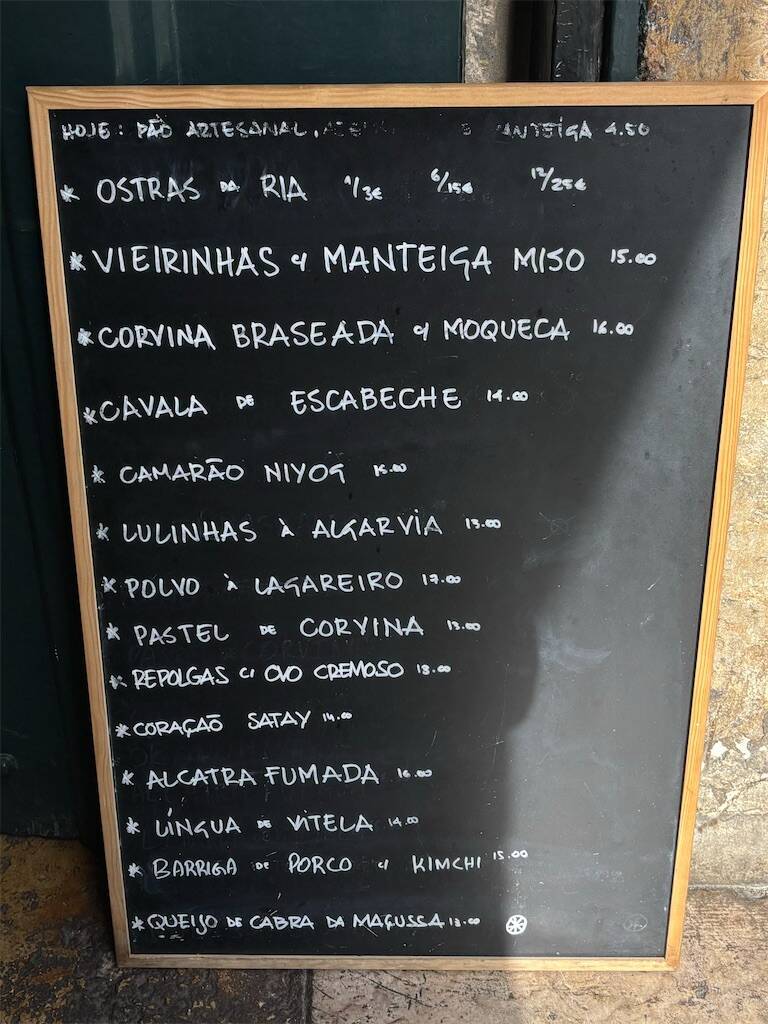 HOJE: PÃO ARTESANAL, E MANTEIGA 4.50
* OSTRAS DA RIA 1/3€ 6/15€ 12/25€
* VIEIRINHAS C/ MANTEIGA MISO 15.00
* CORVINA BRASEADA C/ MOQUECA 16.00
* CAVALA DE ESCABECHE 14.00
* CAMARÃO NIYOG 15.00
* LULINHAS À ALGARVIA 13.00
* POLVO À LAGAREIRO 17.00
* PASTEL DE CORVINA 13.00
* REPOLGAS C/ OVO CREMOSO 13.00
* CORAÇÃO SATAY 14.00
* ALCATRA FUMADA 16.00
* LÍNGUA DE VITELA 14.00
* BARRIGA DE PORCO C/ KIMCHI 15.00
* QUEIJO DE CABRA DA MAÇUSSA 13.00